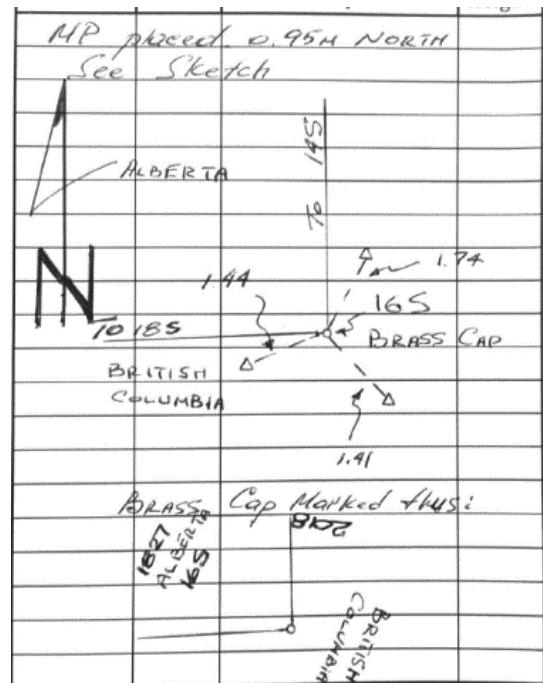 MP placed 0.95M NORTH
See Sketch
ALBERTA
To 14S
N
1.44
1.74
16S
BRASS CAP
TO 18S
BRITISH
COLUMBIA
1.41
BRASS Cap Marked thus:
2018
1827
ALBERTA
16S
BRITISH
COLUMBIA